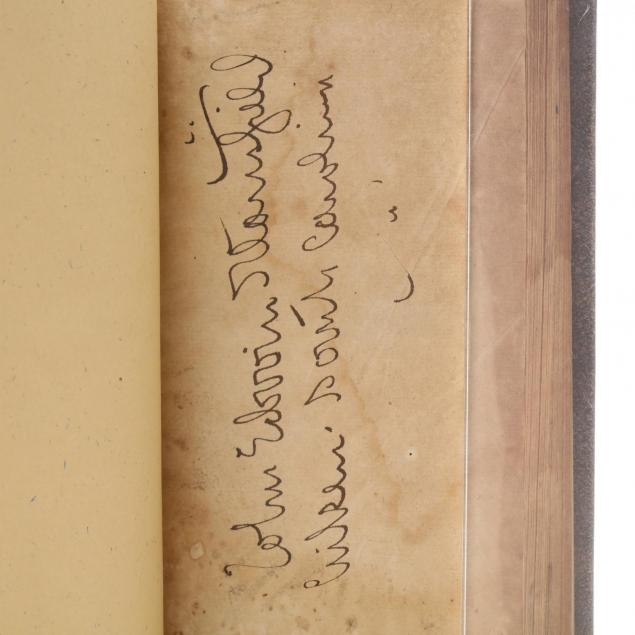 John Edwin Stansfield
Aiken. South Carolina